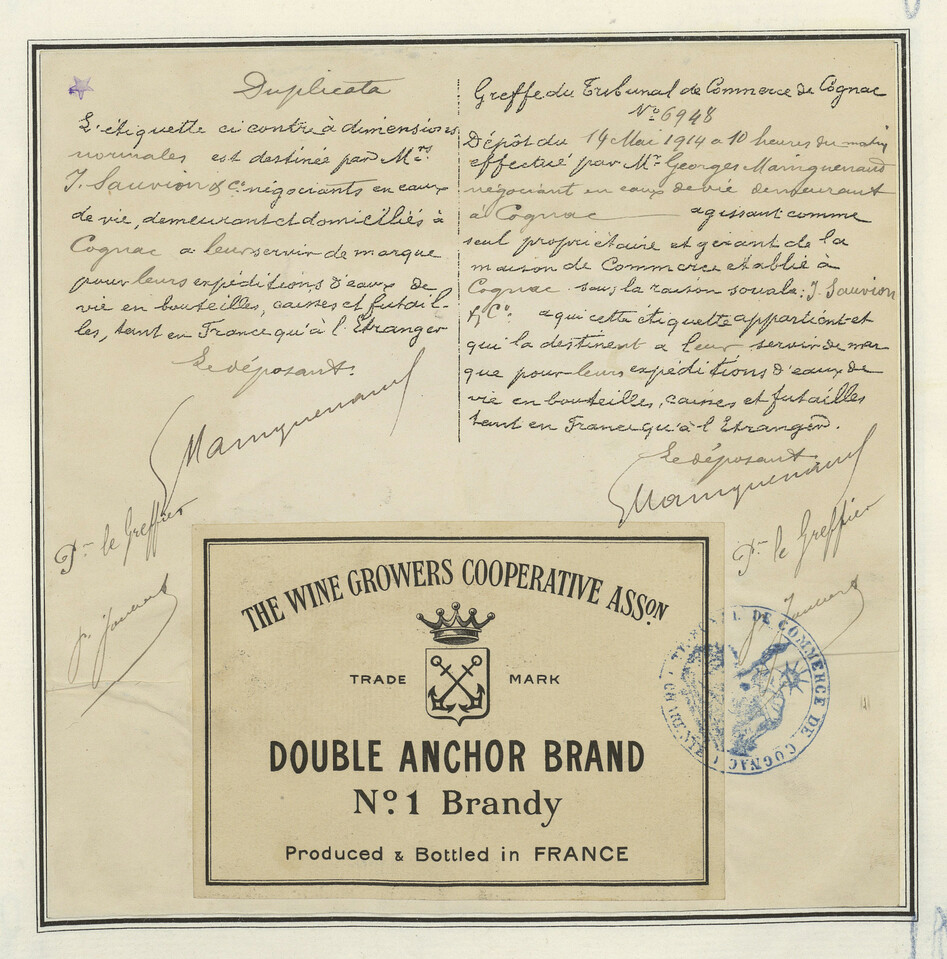 Duplicata
L'étiquette ci contre à dimensions
normales est destinée par Mrs
J. Sauvion & Cie négociants en eaux
de vie, demeurant et domiciliés à
Cognac a leur servir de marque
pour leurs expéditions d'eaux de
vie en bouteilles, caisses et futail-
les, tant en France qu'à l'Etranger
Le déposant.
GMainguenaud
Pr le Greffier
Greffe du Tribunal de Commerce de Cognac
No 6948
Dépôt du 14 Mai 1914 a 10 heures du matin
effectué par Mr Georges Mainguenaud
négociant en eaux de vie demeurant
à Cognac agissant comme
seul propriétaire et gérant de la
maison de Commerce etablie à
Cognac sous la raison sociale: J. Sauvion
& Cie a qui cette étiquette appartient et
qui la destinent a leur servir de mar
que pour leurs expéditions d'eaux de
vie en bouteilles, caisses et futailles
tant en France qu'à l'Etranger.
Le déposant
GMainguenaud
Pr le Greffier
THE WINE GROWERS COOPERATIVE ASSON
TRADE MARK
DOUBLE ANCHOR BRAND
No. 1 Brandy
Produced & Bottled in FRANCE
TRIBUNAL DE COMMERCE DE COGNAC